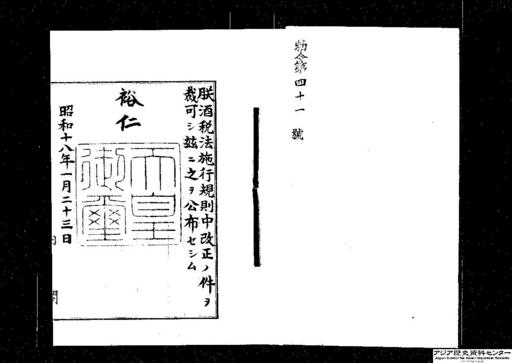 勅令第四十一號
朕酒税法施行規則中改正ノ件ヲ
裁可シ茲ニ之ヲ公布セシム
裕仁
天皇
御璽
昭和十八年一月二十三日
内閣
アジア歴史資料センター
Japan Center for Asian Historical Records